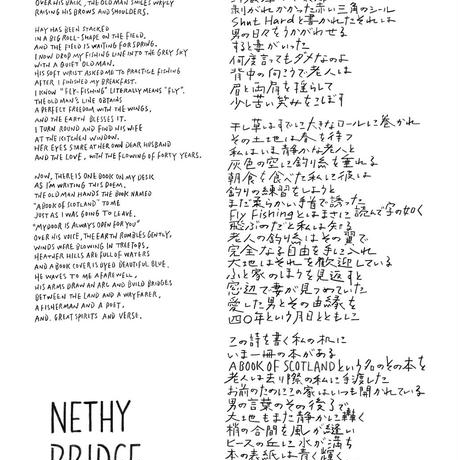 OVER HIS BACK, THE OLD MAN SMILES WRYLY
RAISING HIS BROWS AND SHOULDERS.
HAY HAS BEEN STACKED
IN A BIG ROLL-SHAPE ON THE FIELD,
AND THE FIELD IS WAITING FOR SPRING.
I NOW DROP MY FISHING LINE INTO THE GREY SKY
WITH A QUIET OLD MAN.
HIS SOFT WRIST ASKED ME TO PRACTICE FISHING
AFTER I FINISHED MY BREAKFAST.
I KNOW "FLY-FISHING" LITERALLY MEANS "FLY".
THE OLD MAN'S LINE OBTAINS
A PERFECT FREEDOM WITH THE WINGS,
AND THE EARTH BLESSES IT.
I TURN ROUND AND FIND HIS WIFE
AT THE KITCHEN WINDOW.
HER EYES STARE AT HER OWN DEAR HUSBAND
AND THE LOVE, WITH THE FLOWING OF FORTY YEARS.
NOW, THERE IS ONE BOOK ON MY DESK
AS I'M WRITING THIS POEM.
THE OLD MAN HANDS THE BOOK NAMED
"A BOOK OF SCOTLAND" TO ME
JUST AS I WAS GOING TO LEAVE.
"MY DOOR IS ALWAYS OPEN FOR YOU"
OVER HIS VOICE, THE EARTH RUMBLES GENTLY,
WINDS WERE BLOWING IN TREETOPS,
HEATHER HILLS ARE FULL OF WATERS
AND A BOOK COVER IS DYED BEAUTIFUL BLUE.
HE WAVES TO ME A FAREWELL,
HIS ARMS DRAW AN ARC AND BUILD BRIDGES
BETWEEN THE LAND AND A WAYFARER,
A FISHERMAN AND A POET,
AND, GREAT SPIRITS AND VERSE.
NETHY
BRIDGE
剥がれかかった赤い三角のシール
Shut Hardと書かれたそれは
男の日々をうかがわせる
すると妻がいった
何度言ってもダメなのよ
背中の向こうで老人は
眉と両肩を揺らして
少し苦い笑みをこぼす
干し草はすでに大きなロールに巻かれ
その土地は春を待つ
私はいま静かな老人と
灰色の空に釣り糸を垂れる
朝食を食べた私に彼は
釣りの練習をしようと
まだ柔らかい手首で誘った
Fly Fishingとはまさに読んで字の如く
飛ぶのだと私は知る
老人の釣り糸はその翼で
完全なる自由を手に入れ
大地はそれを歓迎している
ふと家のほうを見返すと
窓辺で妻が見つめていた
愛した男とその由縁を
四〇年という月日とともに
この詩を書く私の机に
いま一冊の本がある
A BOOK OF SCOTLANDという名のその本を
老人は去り際の私に手渡した
お前のためにこの家はいつも開かれている
男の言葉のその後ろで
大地もまた静かに轟く
梢の合間を風が縫い
ヒースの丘に水が満ち
本の表紙は青く輝く